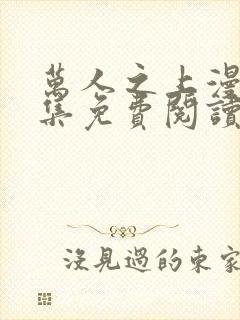 萬人之上漫
集免費閱讀
沒見過的東家